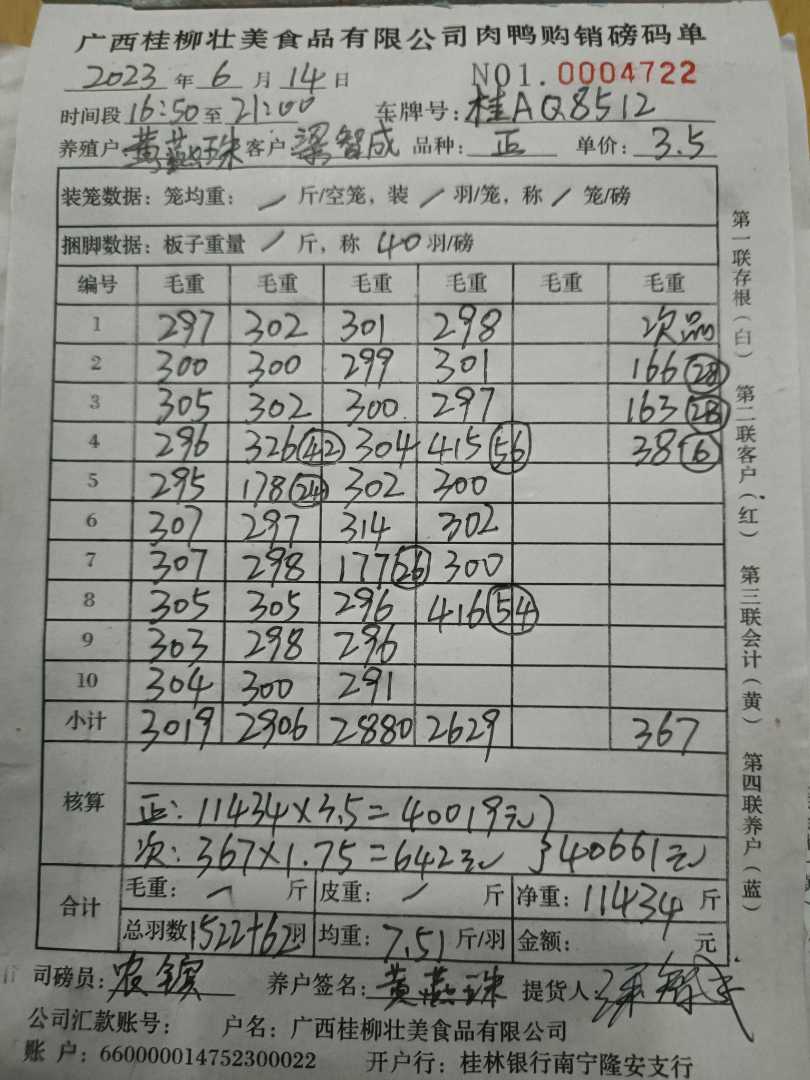 广西桂柳壮美食品有限公司肉鸭购销磅码单
2023年6月14日 NO1.0004722
时间段16:50至21:00 车牌号:桂AQ8512
养殖户黄燕珠客户梁智成 品种:正 单价:3.5
装笼数据:笼均重:/斤/空笼,装/羽/笼,称/笼/磅
捆脚数据:板子重量/斤,称40羽/磅
编号 毛重 毛重 毛重 毛重 毛重 毛重
1 297 302 301 298 次品
2 300 300 299 301 166(28)
3 305 302 300 297 163(28)
4 296 326(42) 304 415(56) 38(6)
5 295 178(24) 302 300
6 307 297 314 302
7 307 298 177(26) 300
8 305 305 296 416(54)
9 303 298 296
10 304 300 291
小计 3019 2906 2880 2629 367
核算
正:11434×3.5=40019元}
次:367×1.75=642元}40661元
合计
毛重:/斤 皮重:/斤 净重:11434斤
总羽数1522+62羽 均重:7.51斤/羽 金额: 元
司磅员:农 养户签名:黄燕珠 提货人:梁智成
公司汇款账号: 户名:广西桂柳壮美食品有限公司
账 户:660000014752300022 开户行:桂林银行南宁隆安支行
第一联存根(白) 第二联客户(红) 第三联会计(黄) 第四联养户(蓝)